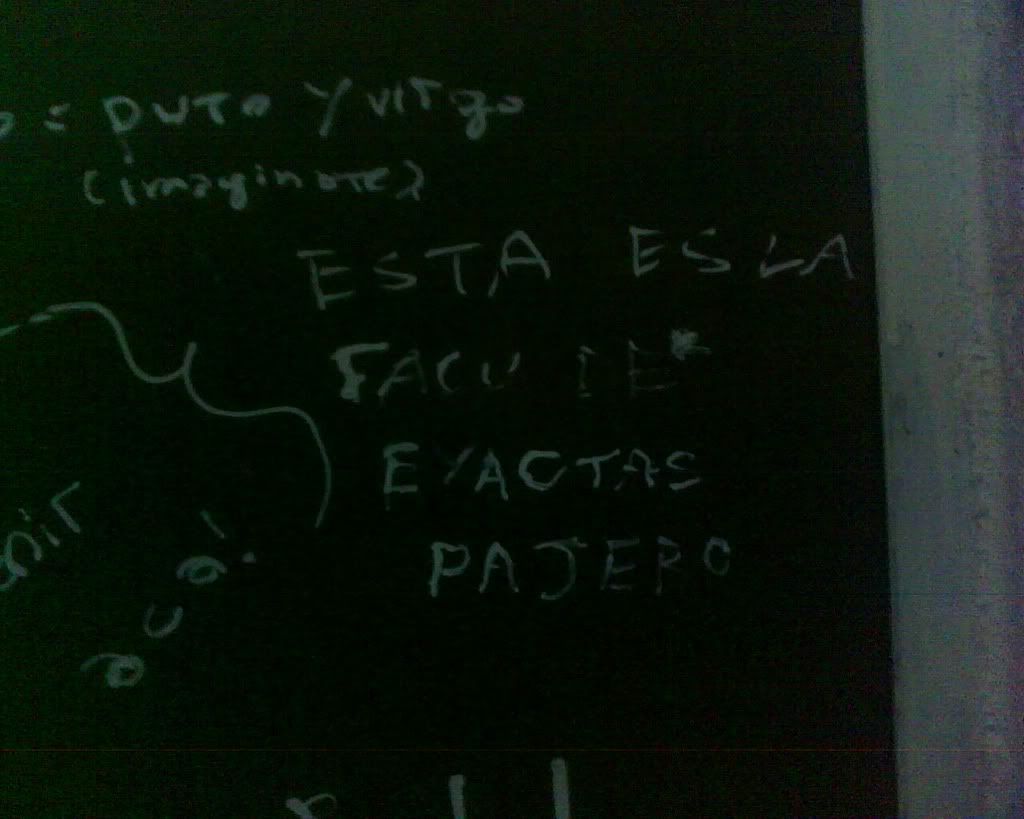 = PUTO Y VIrgo
(imaginate)
ESTA ES LA
FACU DE
EXACTAS
PAJERO